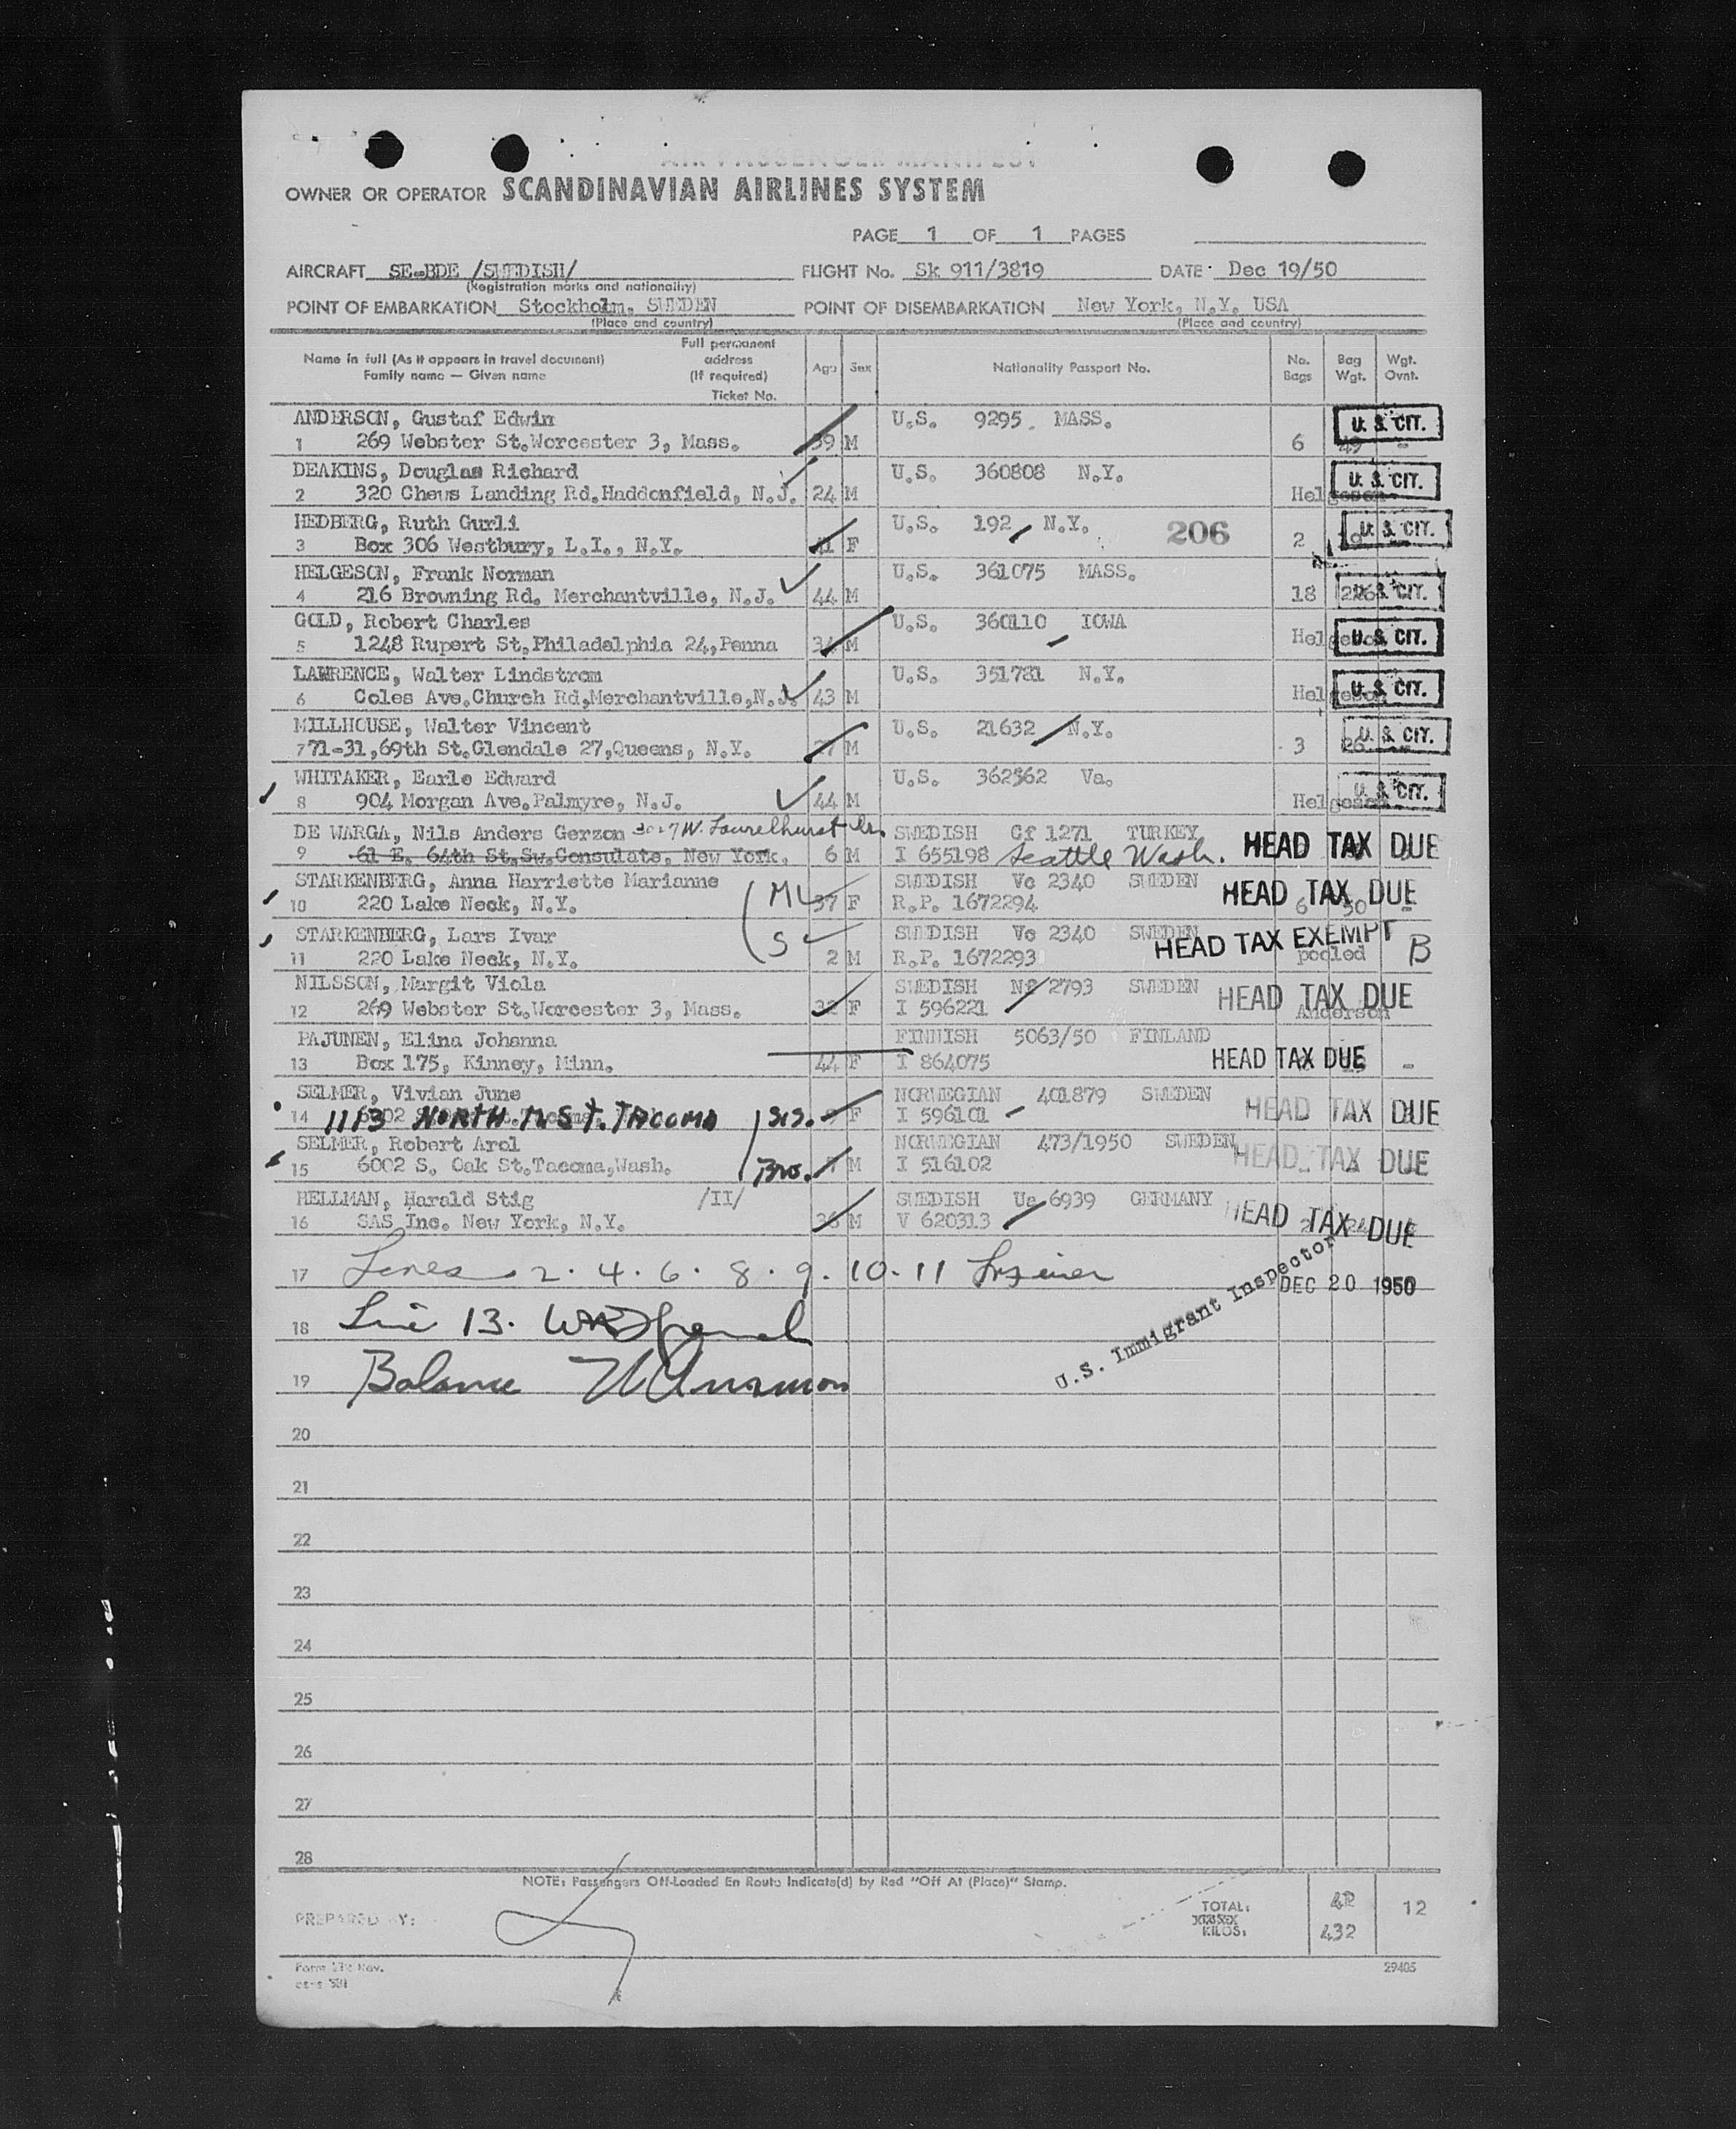 AIR PASSENGER MANIFEST
OWNER OR OPERATOR SCANDINAVIAN AIRLINES SYSTEM
PAGE 1 OF 1 PAGES
AIRCRAFT SE-BDE /SWEDISH/ FLIGHT No. Sk 911/3819 DATE Dec 19/50
(Registration marks and nationality)
POINT OF EMBARKATION Stockholm, SWEDEN POINT OF DISEMBARKATION New York, N.Y. USA
(Place and country) (Place and country)
Name in full (As it appears in travel document) Family name — Given name Full permanent address (If required) Ticket No. Age Sex Nationality Passport No. No. Bags Bag Wgt. Wgt. Ovnt.
ANDERSON, Gustaf Edwin U.S. 9295 MASS. U. S. CIT.
1 269 Webster St.Worcester 3, Mass. 39 M 6 49 -
DEAKINS, Douglas Richard U.S. 360808 N.Y. U. S. CIT.
2 320 Chews Landing Rd.Haddonfield, N.J. 24 M Helgeson
HEDBERG, Ruth Gurli U.S. 192 N.Y. 206 U. S. CIT.
3 Box 306 Westbury, L.I., N.Y. F 2
HELGESON, Frank Norman U.S. 361075 MASS. U. S. CIT.
4 216 Browning Rd. Merchantville, N.J. 44 M 18
GOLD, Robert Charles U.S. 360110 IOWA U. S. CIT.
5 1248 Rupert St.Philadelphia 24,Penna M Helgeson
LAWRENCE, Walter Lindstrom U.S. 351781 N.Y. U. S. CIT.
6 Coles Ave.Church Rd,Merchantville,N.J. 43 M Helgeson
MILLHOUSE, Walter Vincent U.S. 21632 N.Y. U. S. CIT.
7 71-31,69th St.Glendale 27,Queens, N.Y. 27 M 3 26
WHITAKER, Earle Edward U.S. 362562 Va. U. S. CIT.
8 904 Morgan Ave.Palmyre, N.J. 44 M Helgeson
DE WARGA, Nils Anders Gerzon 3027 W. Laurelhurst Dr. SWEDISH Cf 1271 TURKEY HEAD TAX DUE
9 61 E. 64th St.Sw.Consulate, New York. 6 M I 655198 Seattle Wash.
STARKENBERG, Anna Harriette Marianne SWEDISH Vc 2340 SWEDEN HEAD TAX DUE
10 220 Lake Neck, N.Y. 37 F R.P. 1672294 6 50 -
STARKENBERG, Lars Ivar S SWEDISH Vc 2340 SWEDEN HEAD TAX EXEMPT B
11 220 Lake Neck, N.Y. 2 M R.P. 1672293 pooled
NILSSON, Margit Viola SWEDISH 2793 SWEDEN HEAD TAX DUE
12 269 Webster St.Worcester 3, Mass. 32 F I 596221 Anderson
PAJUNEN, Elina Johanna FINNISH 5063/50 FINLAND HEAD TAX DUE
13 Box 175, Kinney, Minn. 44 F I 864075 -
SELMER, Vivian June NORWEGIAN 401879 SWEDEN HEAD TAX DUE
14 1113 NORTH ST. TACOMA Sis. F I 596101
SELMER, Robert Arol NORWEGIAN 473/1950 SWEDEN HEAD TAX DUE
15 6002 S. Oak St.Tacoma,Wash. Bro. M I 516102
HELLMAN, Harald Stig /II/ SWEDISH Ue 6939 GERMANY HEAD TAX DUE
16 SAS Inc. New York, N.Y. 36 M V 620313
17 Lines 2. 4. 6. 8. 9. 10. 11 DEC 20 1950
U.S. Immigrant Inspector
18 Line 13.
19 Balance
20
21
22
23
24
25
26
27
28
NOTE: Passengers Off-Loaded En Route Indicate(d) by Red "Off At (Place)" Stamp.
PREPARED BY: TOTAL: KILOS: 42 432 12
29405